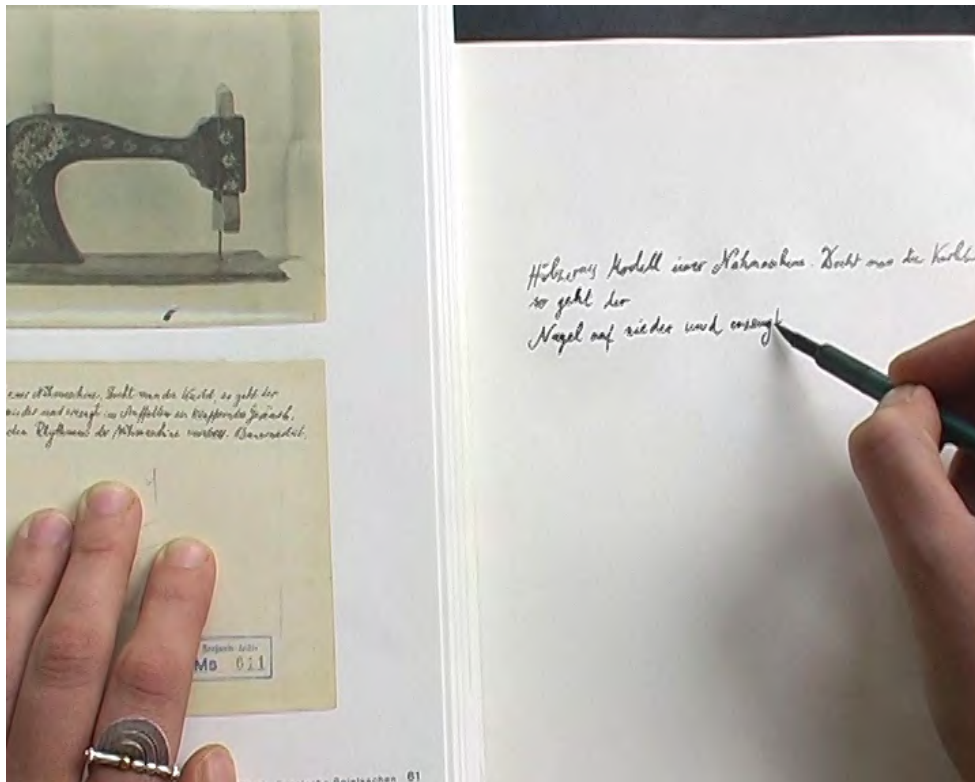 einer Nähmaschine. Dreht man die Kurbel, so geht der
nieder und erzeugt im Auffallen ein klapperndes Geräusch,
den Rhythmus der Nähmaschine
Benjamin-Archiv
Ms 611
Spielsachen 61
Hölzernes Modell einer Nähmaschine. Dreht man die Kurbel
so geht der
Nagel auf nieder und erzeugt